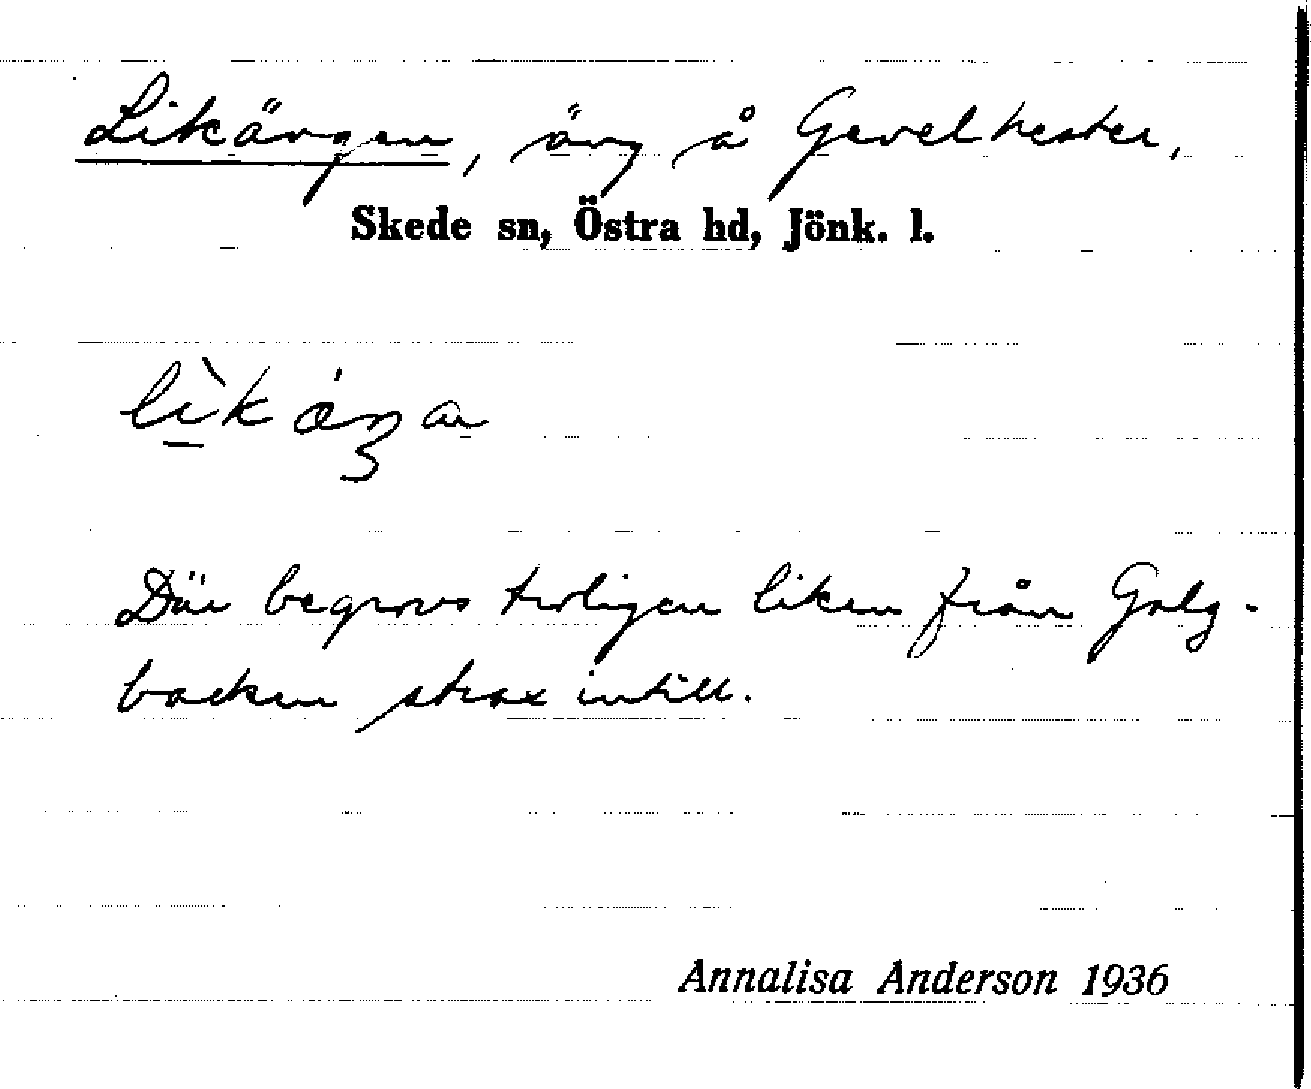 Likängen, äng å Gevelhester,
Skede sn, Östra hd, Jönk. l.
Där begrovs troligen liken från Galg-
backen strax intill.
Annalisa Anderson 1936